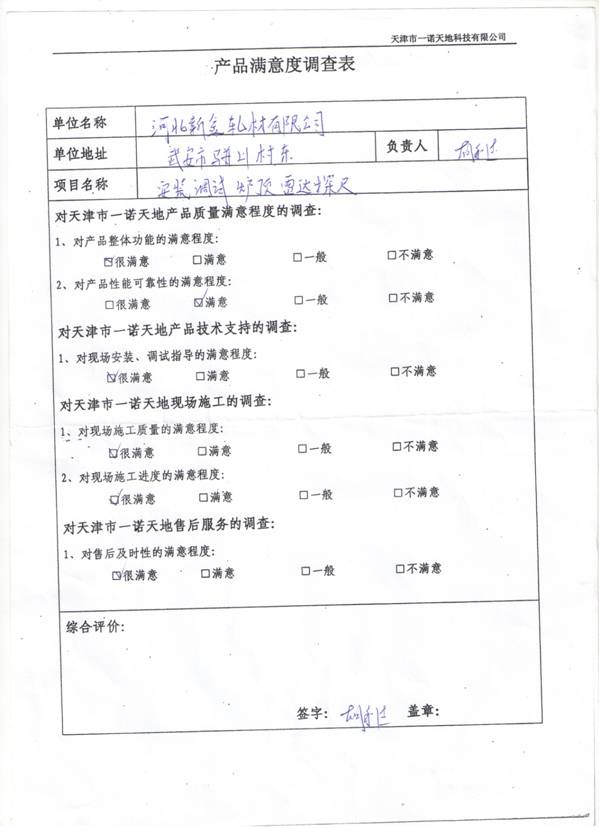 天津市一诺天地科技有限公司
产品满意度调查表
单位名称 河北新金轧材有限公司
单位地址 武安市 村东 负责人
项目名称 安装调试炉顶雷达探尺
对天津市一诺天地产品质量满意程度的调查:
1、对产品整体功能的满意程度:
☑很满意 □满意 □一般 □不满意
2、对产品性能可靠性的满意程度:
□很满意 ☑满意 □一般 □不满意
对天津市一诺天地产品技术支持的调查:
1、对现场安装、调试指导的满意程度:
☑很满意 □满意 □一般 □不满意
对天津市一诺天地现场施工的调查:
1、对现场施工质量的满意程度:
☑很满意 □满意 □一般 □不满意
2、对现场施工进度的满意程度:
☑很满意 □满意 □一般 □不满意
对天津市一诺天地售后服务的调查:
1、对售后及时性的满意程度:
☑很满意 □满意 □一般 □不满意
综合评价:
签字: 盖章: